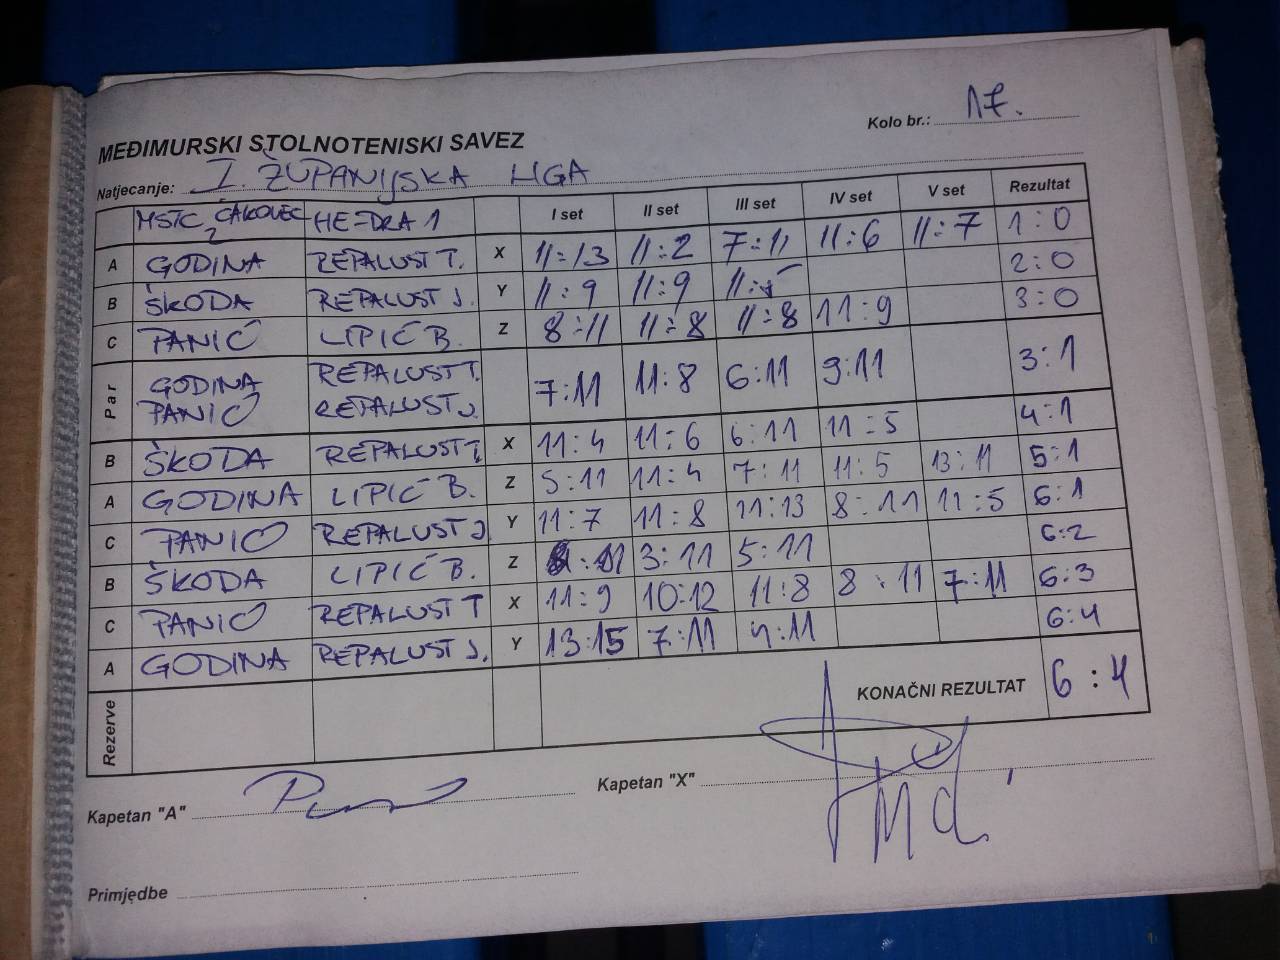 Kolo br.: 17.
MEĐIMURSKI STOLNOTENISKI SAVEZ
Natjecanje: I. ŽUPANIJSKA LIGA
MSTC ČAKOVEC 2 HE-DRA 1 I set II set III set IV set V set Rezultat
A GODINA REPALUST T. X 11:13 11:2 7:11 11:6 11:7 1:0
B ŠKODA REPALUST J. Y 11:9 11:9 11:5 2:0
C PANIĆ LIPIĆ B. Z 8:11 11:8 11:8 11:9 3:0
Par GODINA REPALUST T. 7:11 11:8 6:11 9:11 3:1
PANIĆ REPALUST J.
B ŠKODA REPALUST T. X 11:4 11:6 6:11 11:5 4:1
A GODINA LIPIĆ B. Z 5:11 11:4 7:11 11:5 13:11 5:1
C PANIĆ REPALUST J. Y 11:7 11:8 11:13 8:11 11:5 6:1
B ŠKODA LIPIĆ B. Z :11 3:11 5:11 6:2
C PANIĆ REPALUST T X 11:9 10:12 11:8 8:11 7:11 6:3
A GODINA REPALUST J. Y 13:15 7:11 4:11 6:4
Rezerve KONAČNI REZULTAT 6:4
Kapetan "A" Kapetan "X"
Primjedbe